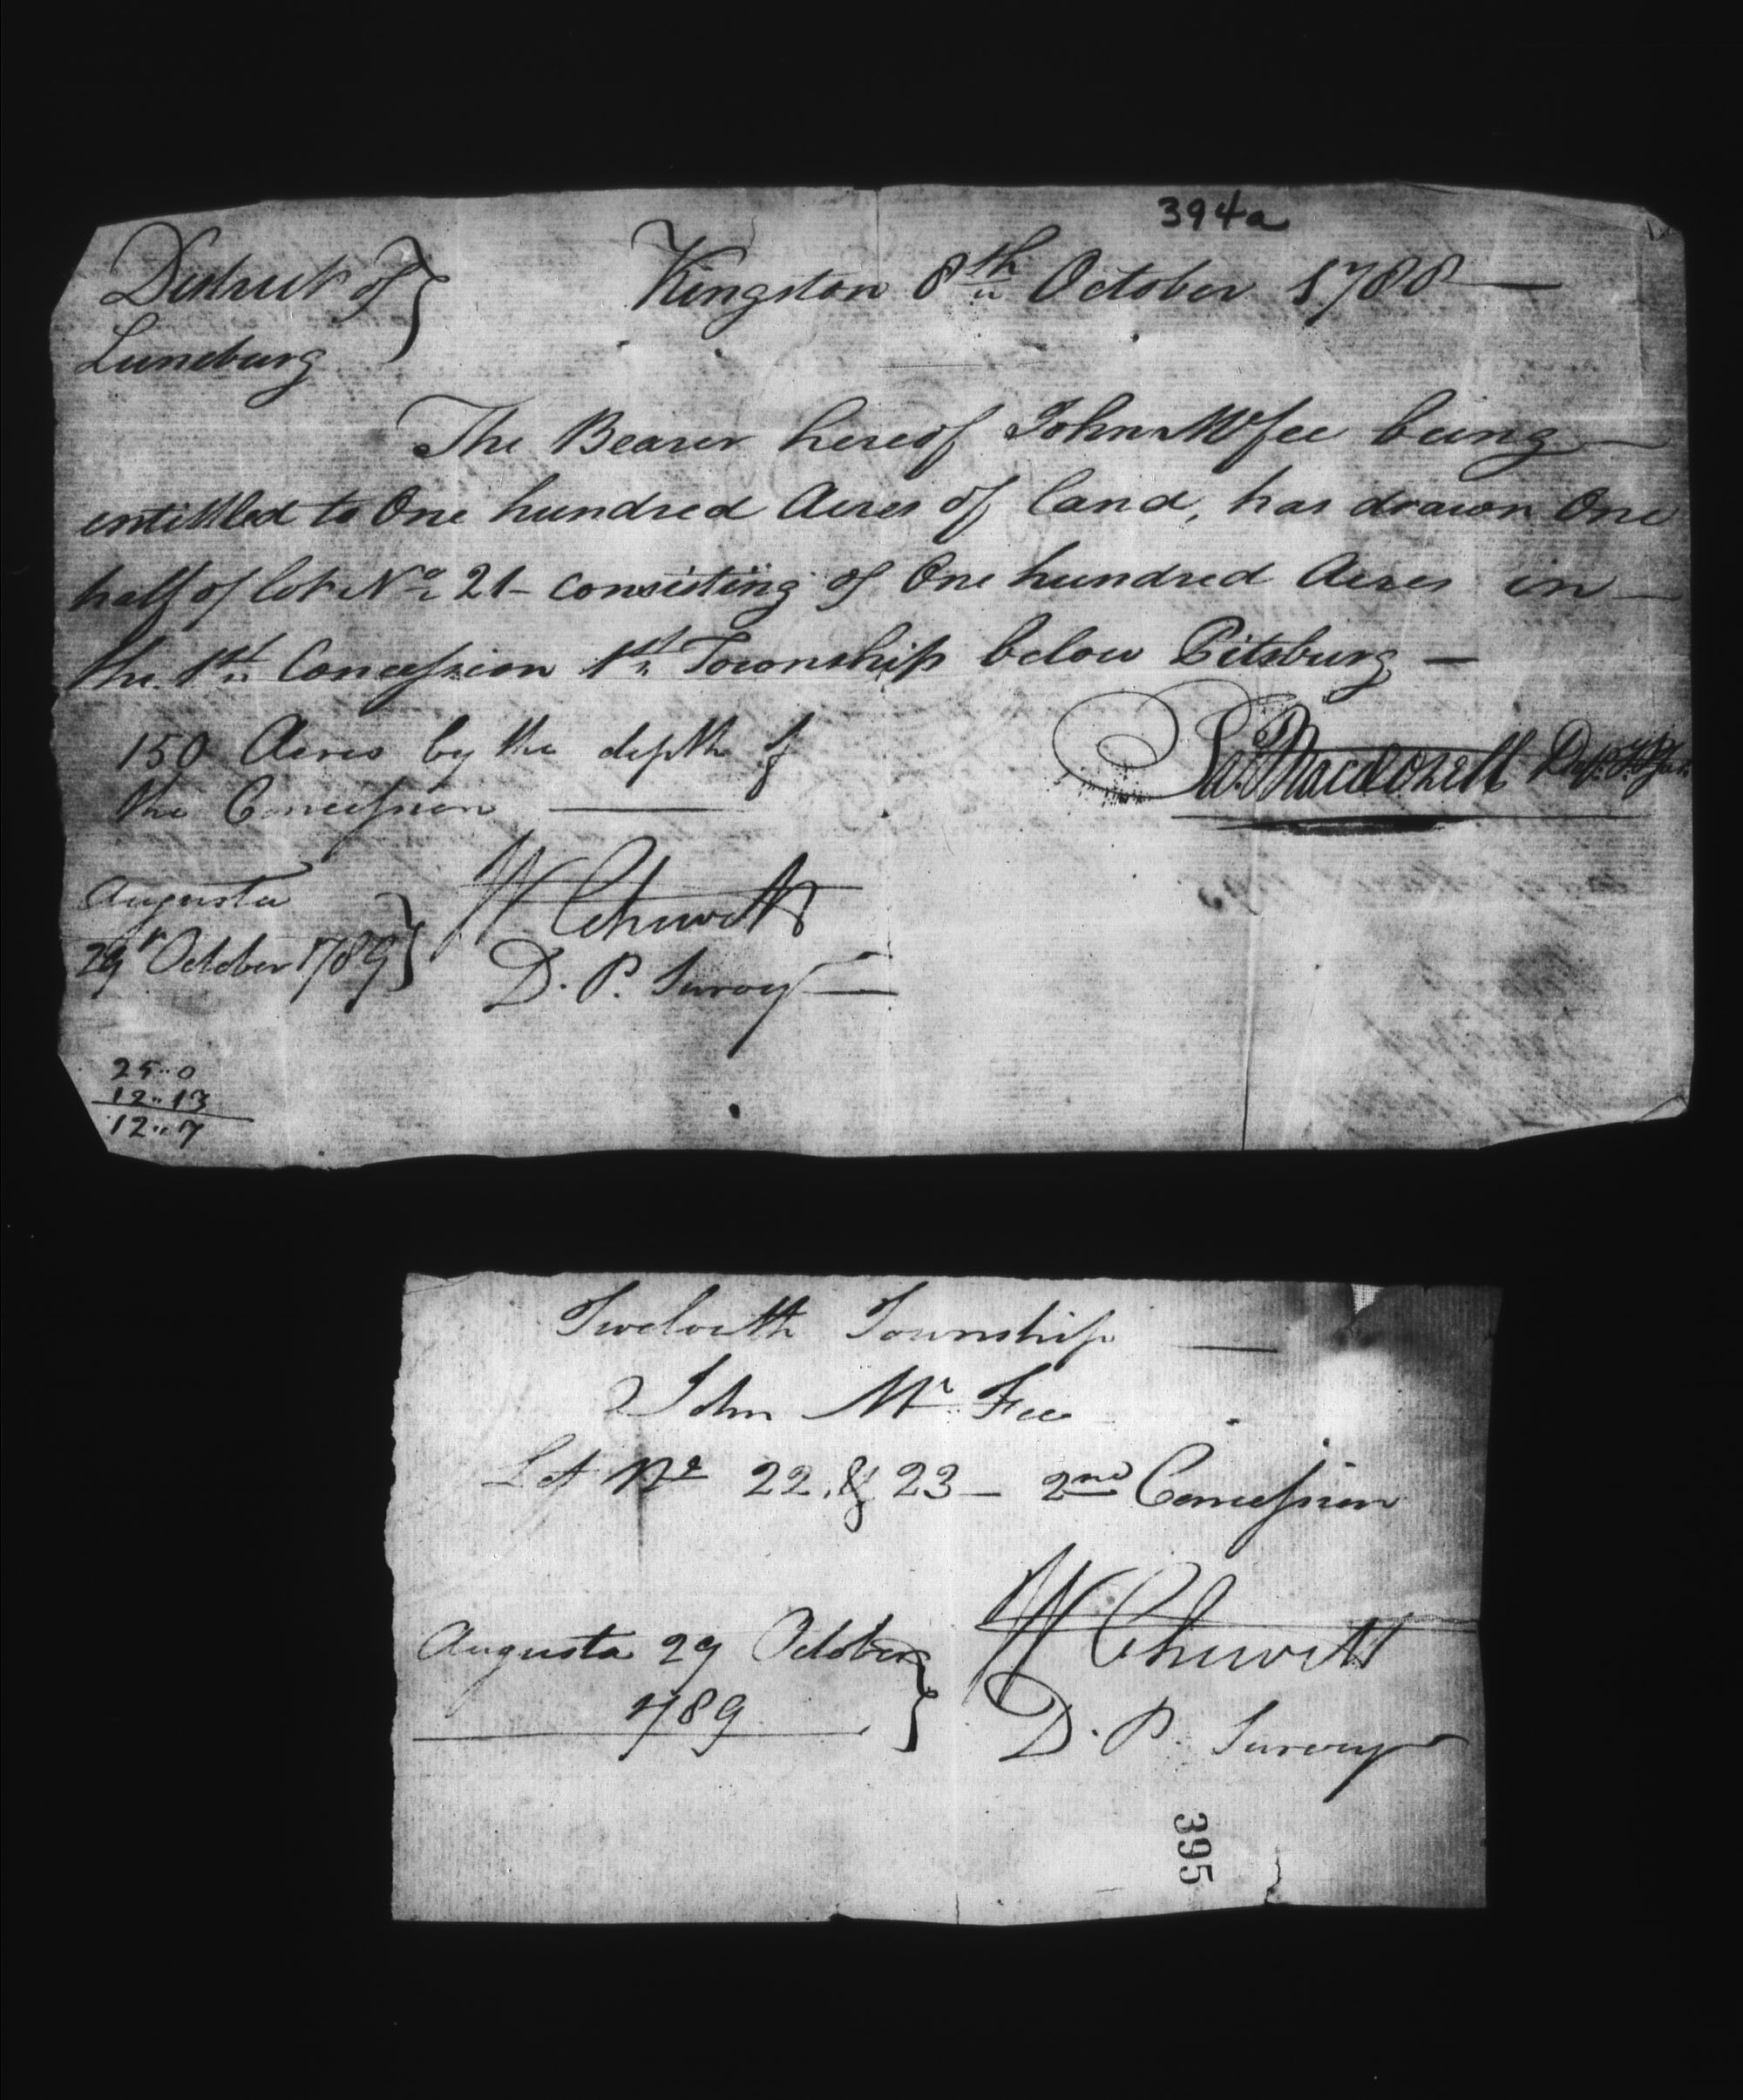 394a
District of } Kingston 8th October 1788 —
Luneburg
The Bearer hereof John Mcfee being —
entittled to One hundred Acres of land, has drawn One
half of lot No 21 – consisting of One hundred Acres in —
the 1st Concession 1st Township below Pitsburg —
150 Acres by the depth of
the Concession —
Macdonell
Augusta
29th October 1789 } W Chewett
D. P. Survey
25..0
12..13
12..7
Twelveth Township —
John Mc Fee
Lot No 22 & 23 – 2nd Concession
Augusta 29 October } W Chewett
1789
D. P. Survey
395